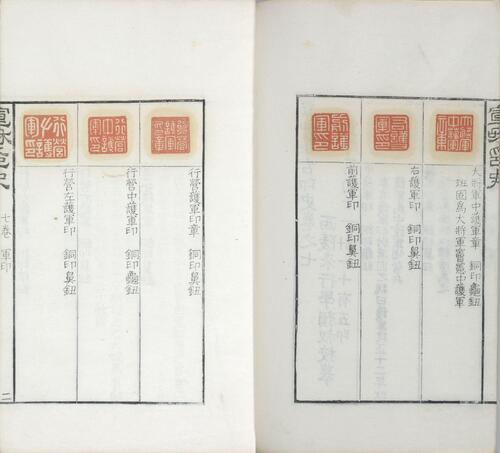 大將軍中護軍章 銅印龜鈕
班固為大將軍竇憲中護軍
右護軍印 銅印鼻鈕
前護軍印 銅印鼻鈕
行營護軍印章 銅印鼻鈕
行營中護軍印 銅印龜鈕
行營左護軍印 銅印鼻鈕
宣和印史 七卷 軍印 二